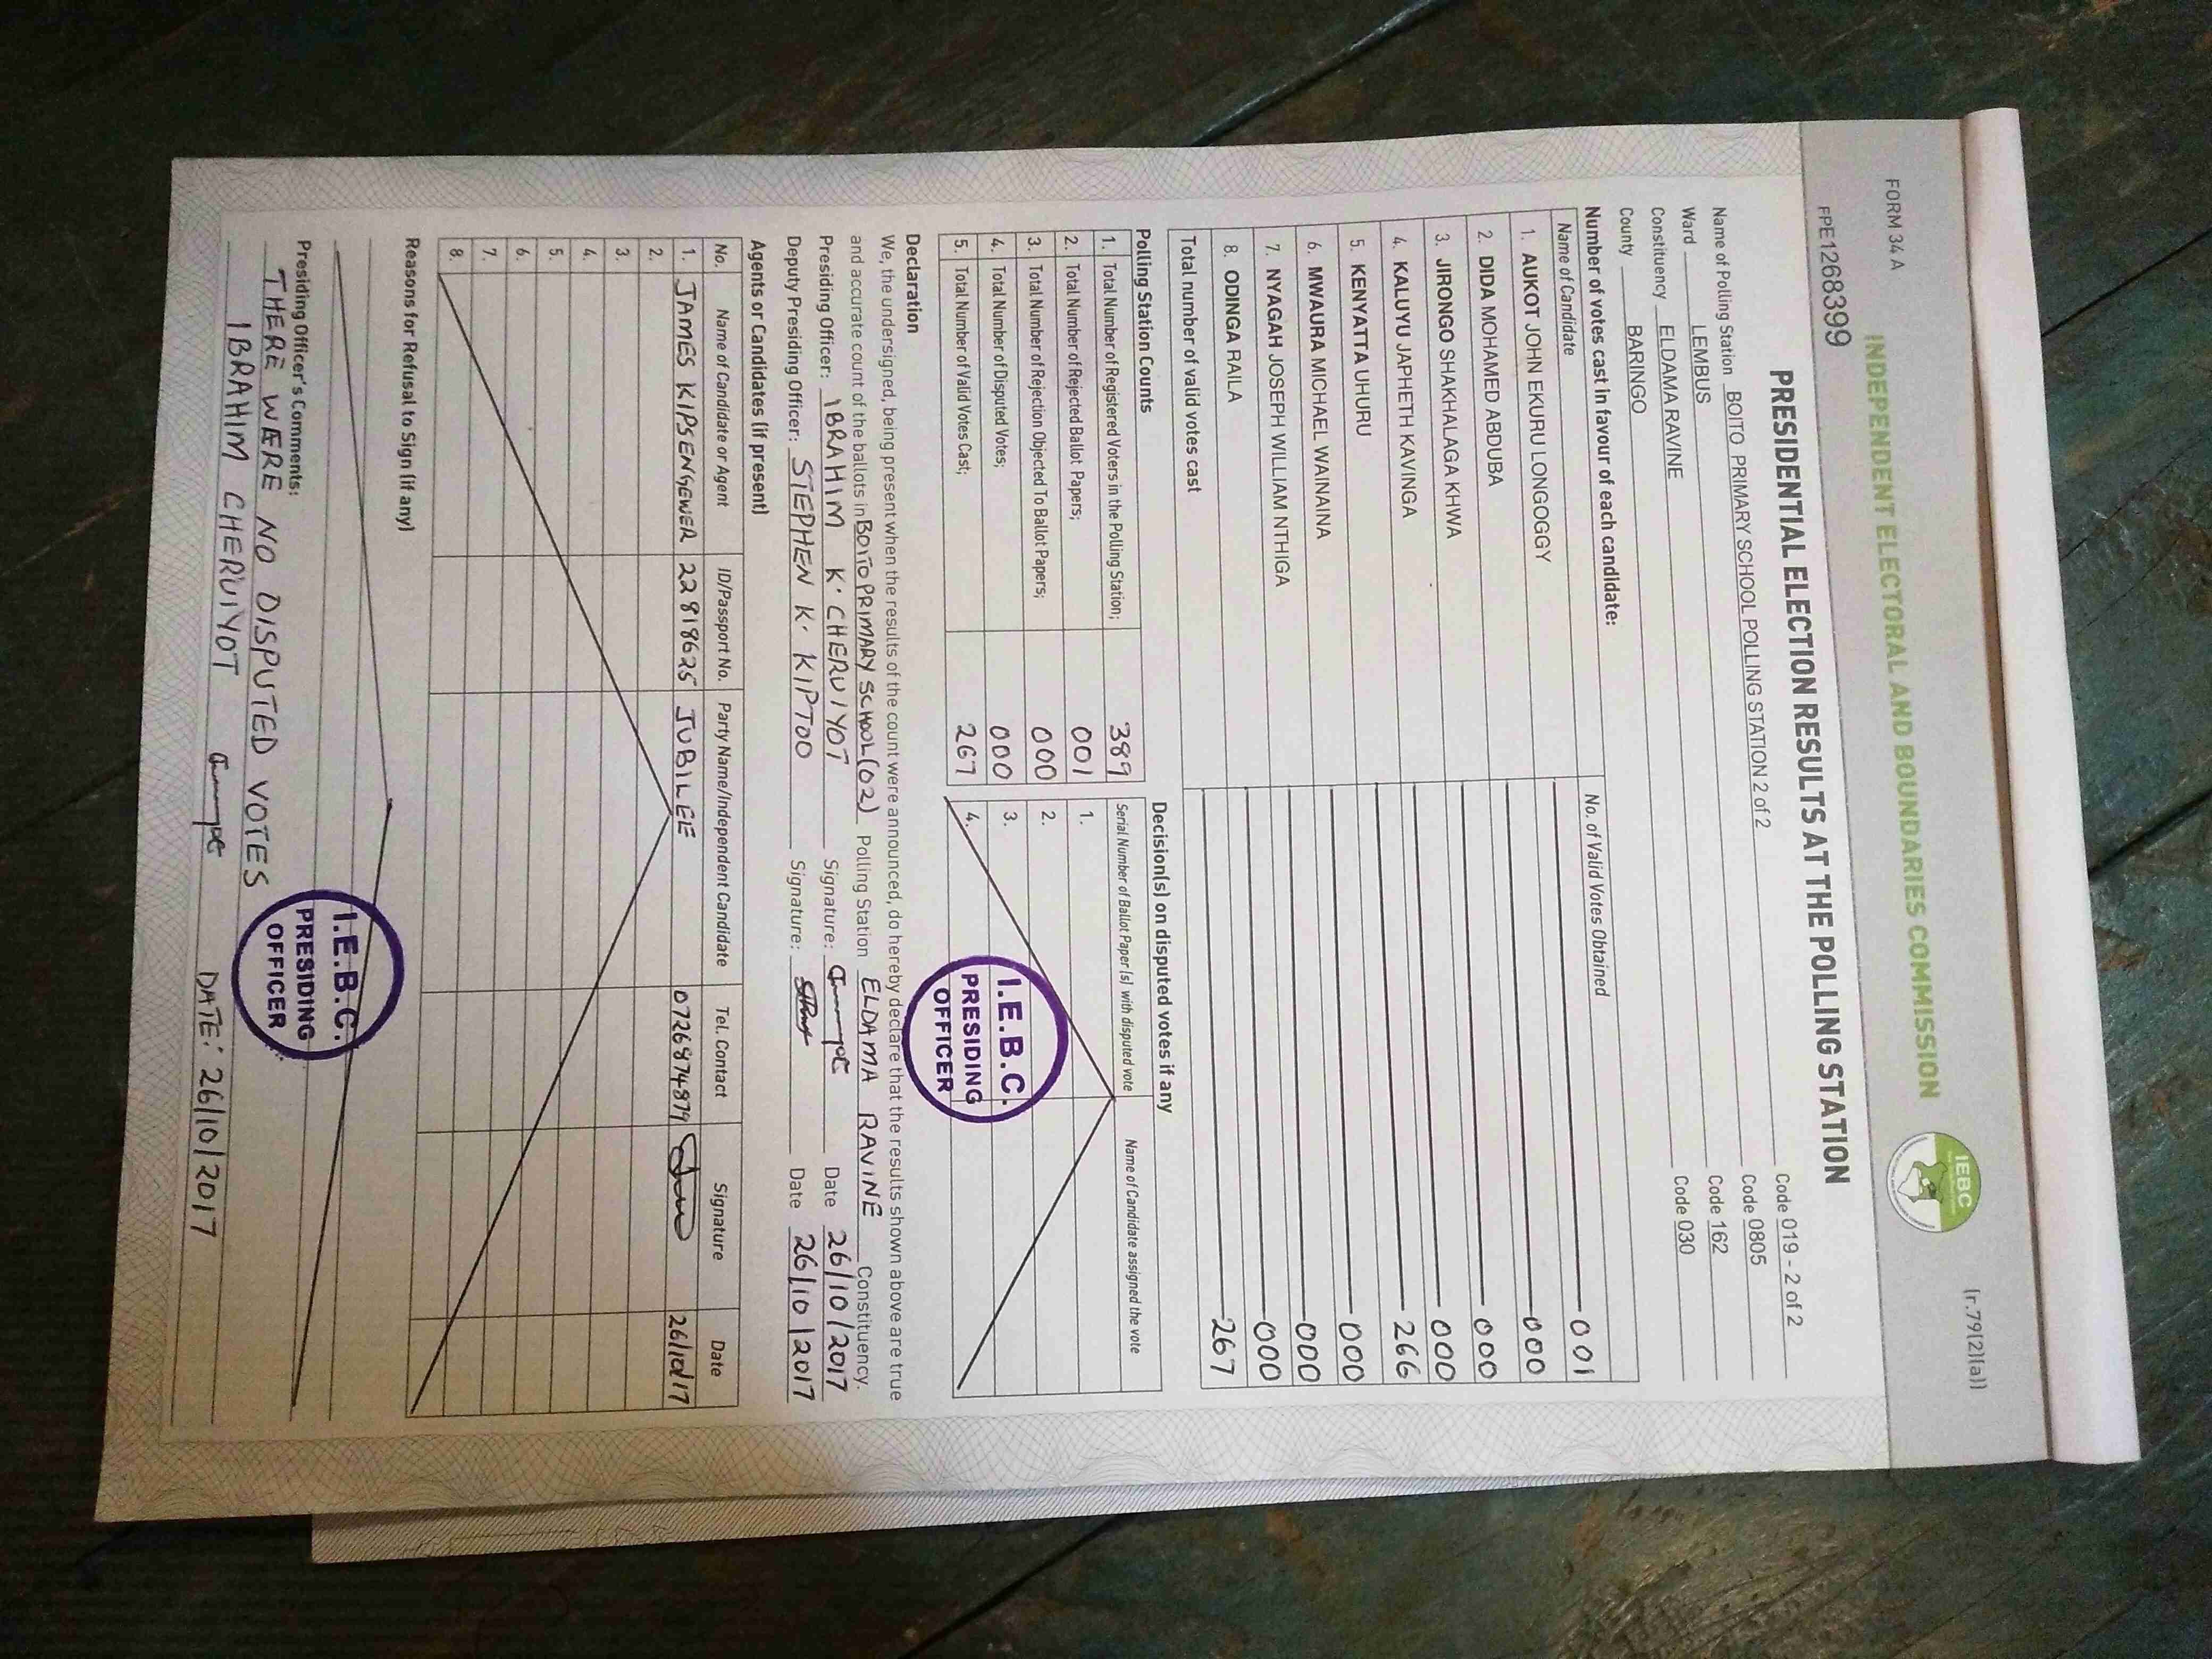 FORM 34 A
(r.79(2)(a))
INDEPENDENT ELECTORAL AND BOUNDARIES COMMISSION
IEBC
FPE1268399
PRESIDENTIAL ELECTION RESULTS AT THE POLLING STATION
Name of Polling Station BOITO PRIMARY SCHOOL POLLING STATION 2 of 2 Code 019 - 2 of 2
Ward LEMBUS Code 0805
Constituency ELDAMA RAVINE Code 162
County BARINGO Code 030
Number of votes cast in favour of each candidate:
Name of Candidate No. of Valid Votes Obtained
1. AUKOT JOHN EKURU LONGOGGY 001
2. DIDA MOHAMED ABDUBA 000
3. JIRONGO SHAKHALAGA KHWA 000
4. KALUYU JAPHETH KAVINGA 000
5. KENYATTA UHURU 266
6. MWAURA MICHAEL WAINAINA 000
7. NYAGAH JOSEPH WILLIAM NTHIGA 000
8. ODINGA RAILA 000
Total number of valid votes cast 267
Polling Station Counts
1. Total Number of Registered Voters in the Polling Station; 389
2. Total Number of Rejected Ballot Papers; 001
3. Total Number of Rejection Objected To Ballot Papers; 000
4. Total Number of Disputed Votes; 000
5. Total Number of Valid Votes Cast; 267
Decision(s) on disputed votes if any
Serial Number of Ballot Paper (s) with disputed vote Name of Candidate assigned the vote
1.
2.
3.
4.
I.E.B.C.
PRESIDING
OFFICER
Declaration
We, the undersigned, being present when the results of the count were announced, do hereby declare that the results shown above are true
and accurate count of the ballots in BOITO PRIMARY SCHOOL (02) Polling Station ELDAMA RAVINE Constituency.
Presiding Officer: IBRAHIM K. CHERUIYOT Signature: Date 26/10/2017
Deputy Presiding Officer: STEPHEN K. KIPTOO Signature: Date 26/10/2017
Agents or Candidates (if present)
No. Name of Candidate or Agent ID/Passport No. Party Name/Independent Candidate Tel. Contact Signature Date
1. JAMES KIPSENGEWER 22818625 JUBILEE 0726974879 26/10/17
2.
3.
4.
5.
6.
7.
8.
Reasons for Refusal to Sign (if any)
Presiding Officer's Comments:
THERE WERE NO DISPUTED VOTES
IBRAHIM CHERUIYOT DATE: 26/10/2017
I.E.B.C.
PRESIDING
OFFICER